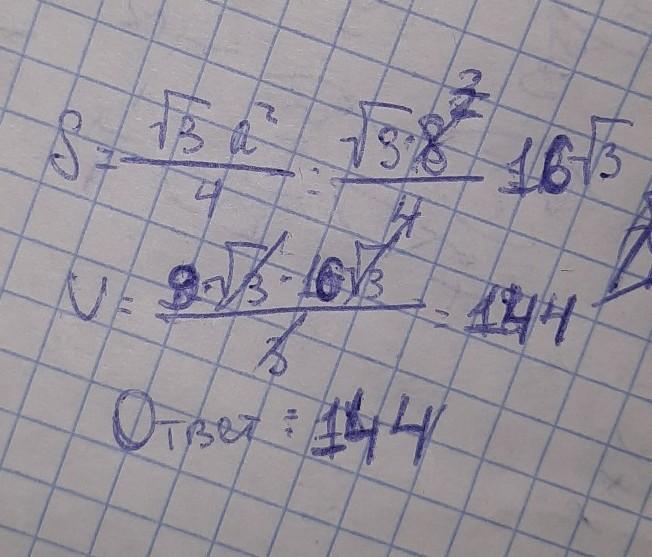 S = √3 a² / 4 = √3 · 8² / 4 16√3
V = 9·√3 · 16√3 / 3 = 144
Ответ: 144